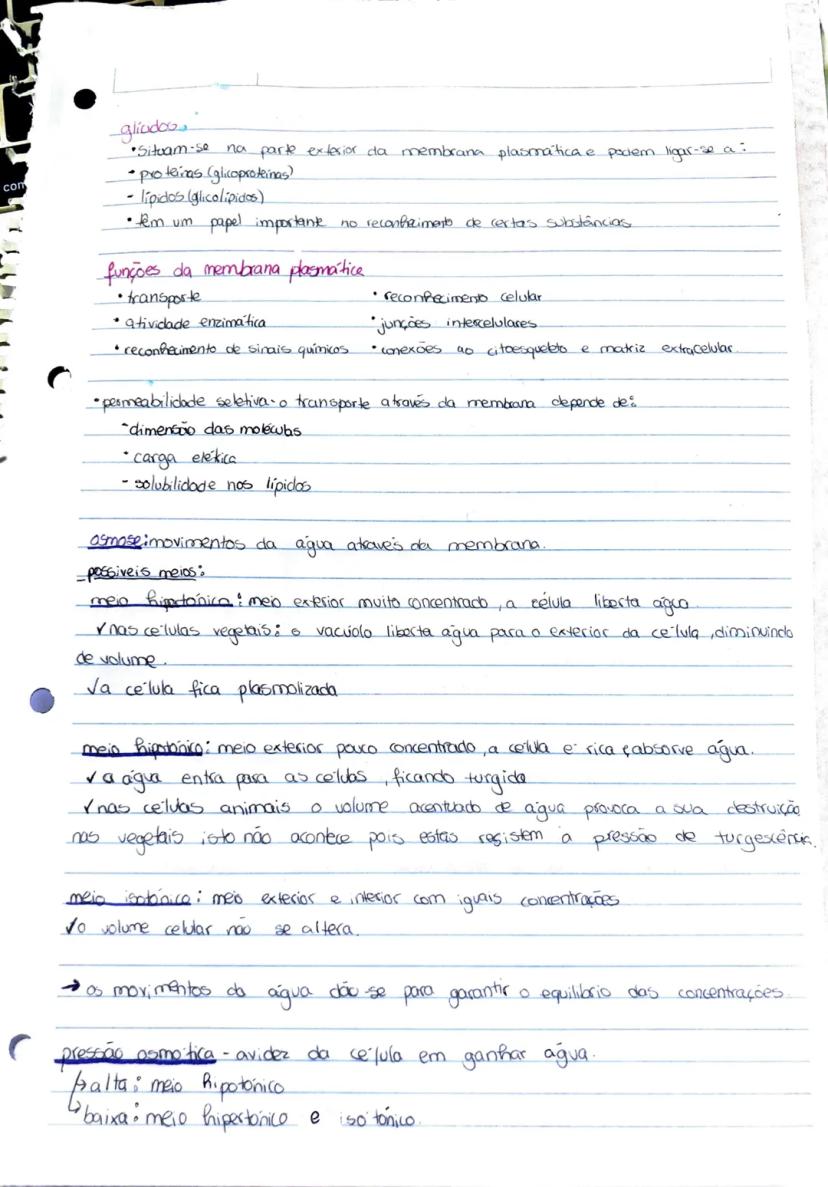 glícidos
• Situam-se na parte exterior da membrana plasmática e podem ligar-se a:
- proteínas (glicoproteínas)
- lípidos (glicolípidos)
• têm um papel importante no reconhecimento de certas substâncias
funções da membrana plasmática
• transporte • reconhecimento celular
• atividade enzimática • junções intercelulares
• reconhecimento de sinais químicos • conexões ao citoesqueleto e matriz extracelular.
• permeabilidade seletiva - o transporte através da membrana depende de:
- dimensão das moléculas
• carga elétrica
- solubilidade nos lípidos
osmose: movimentos da água através da membrana.
possíveis meios:
meio hipertónico: meio exterior muito concentrado, a célula liberta água.
✓ nas células vegetais: o vacúolo liberta água para o exterior da célula, diminuindo
de volume.
✓ a célula fica plasmolizada
meio hipotónico: meio exterior pouco concentrado, a célula é rica e absorve água.
✓ a água entra para as células, ficando turgida
✓ nas células animais o volume acentuado de água provoca a sua destruição
nas vegetais isto não acontece pois estas resistem à pressão de turgescência.
meio isotónico: meio exterior e interior com iguais concentrações
✓ o volume celular não se altera.
→ os movimentos da água dão-se para garantir o equilíbrio das concentrações.
pressão osmótica - avidez da célula em ganhar água.
↳ alta: meio hipotónico
↳ baixa: meio hipertónico e isotónico.